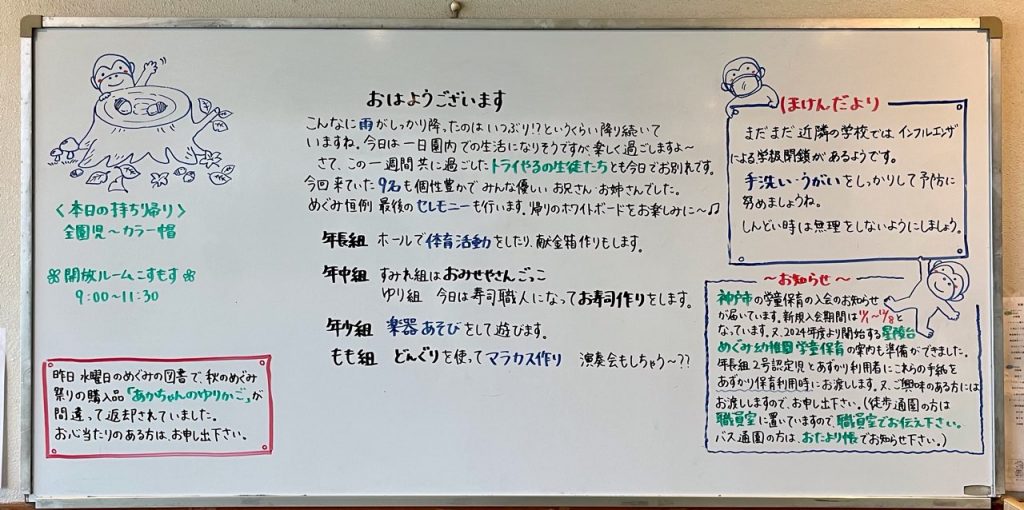 <本日の持ち帰り>
全園児〜カラー帽
開放ルームこすもす
9:00〜11:30
昨日 水曜日のめぐみの図書で、秋のめぐみ
祭りの購入品「あかちゃんのゆりかご」が
間違って返却されていました。
お心当たりのある方は、お申し出下さい。
おはようございます
こんなに雨がしっかり降ったのはいつぶり!?というくらい降り続いて
いますね。今日は一日園内での生活になりそうですが楽しく過ごしますよ〜
さて、この一週間共に過ごしたトライやるの生徒たちとも今日でお別れです。
今回来ていた9名も個性豊かでみんな優しいお兄さん・お姉さんでした。
めぐみ恒例 最後のセレモニーも行います。帰りのホワイトボードをお楽しみに〜♫
年長組 ホールで体育活動をしたり、献金箱作りもします。
年中組 すみれ組はおみせやさんごっこ
ゆり組 今日は寿司職人になってお寿司作りをします。
年少組 楽器あそびをして遊びます。
もも組 どんぐりを使ってマラカス作り 演奏会もしちゃう〜??
ほけんだより
まだまだ近隣の学校では、インフルエンザ
による学級閉鎖があるようです。
手洗い・うがいをしっかりして予防に
努めましょうね。
しんどい時は無理をしないようにしましょう。
〜お知らせ〜
神戸市の学童保育の入会のお知らせ
が届いています。新規入会期間は11/1〜12/8と
なっています。又、2024年度より開始する星陵台
めぐみ幼稚園学童保育の案内も準備ができました。
年長組2号認定児とあずかり利用者にこれらの手紙を
あずかり保育利用時にお渡しします。又、ご興味のある方には
お渡ししますので、お申し出下さい。(徒歩通園の方は
職員室に置いていますので、職員室でお伝え下さい。
バス通園の方は、おたより帳でお知らせ下さい。)